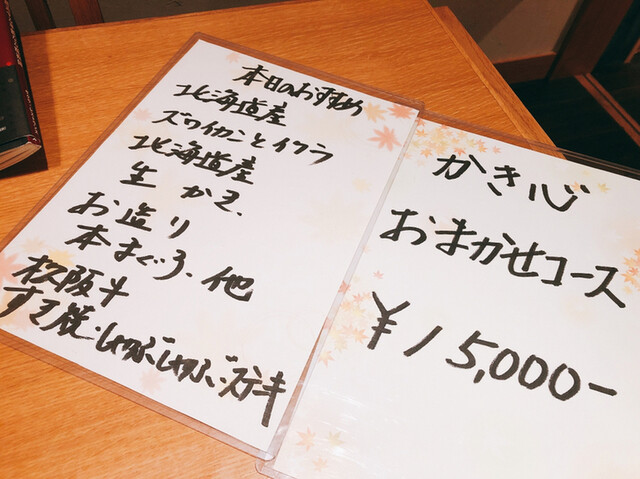 本日のおすすめ
北海道産
ズワイカニとイクラ
北海道産
生 かき、
お造り
本まぐろ、他
松阪牛
すき焼・しゃぶしゃぶ・ステーキ
かき心
おまかせコース
¥15,000-